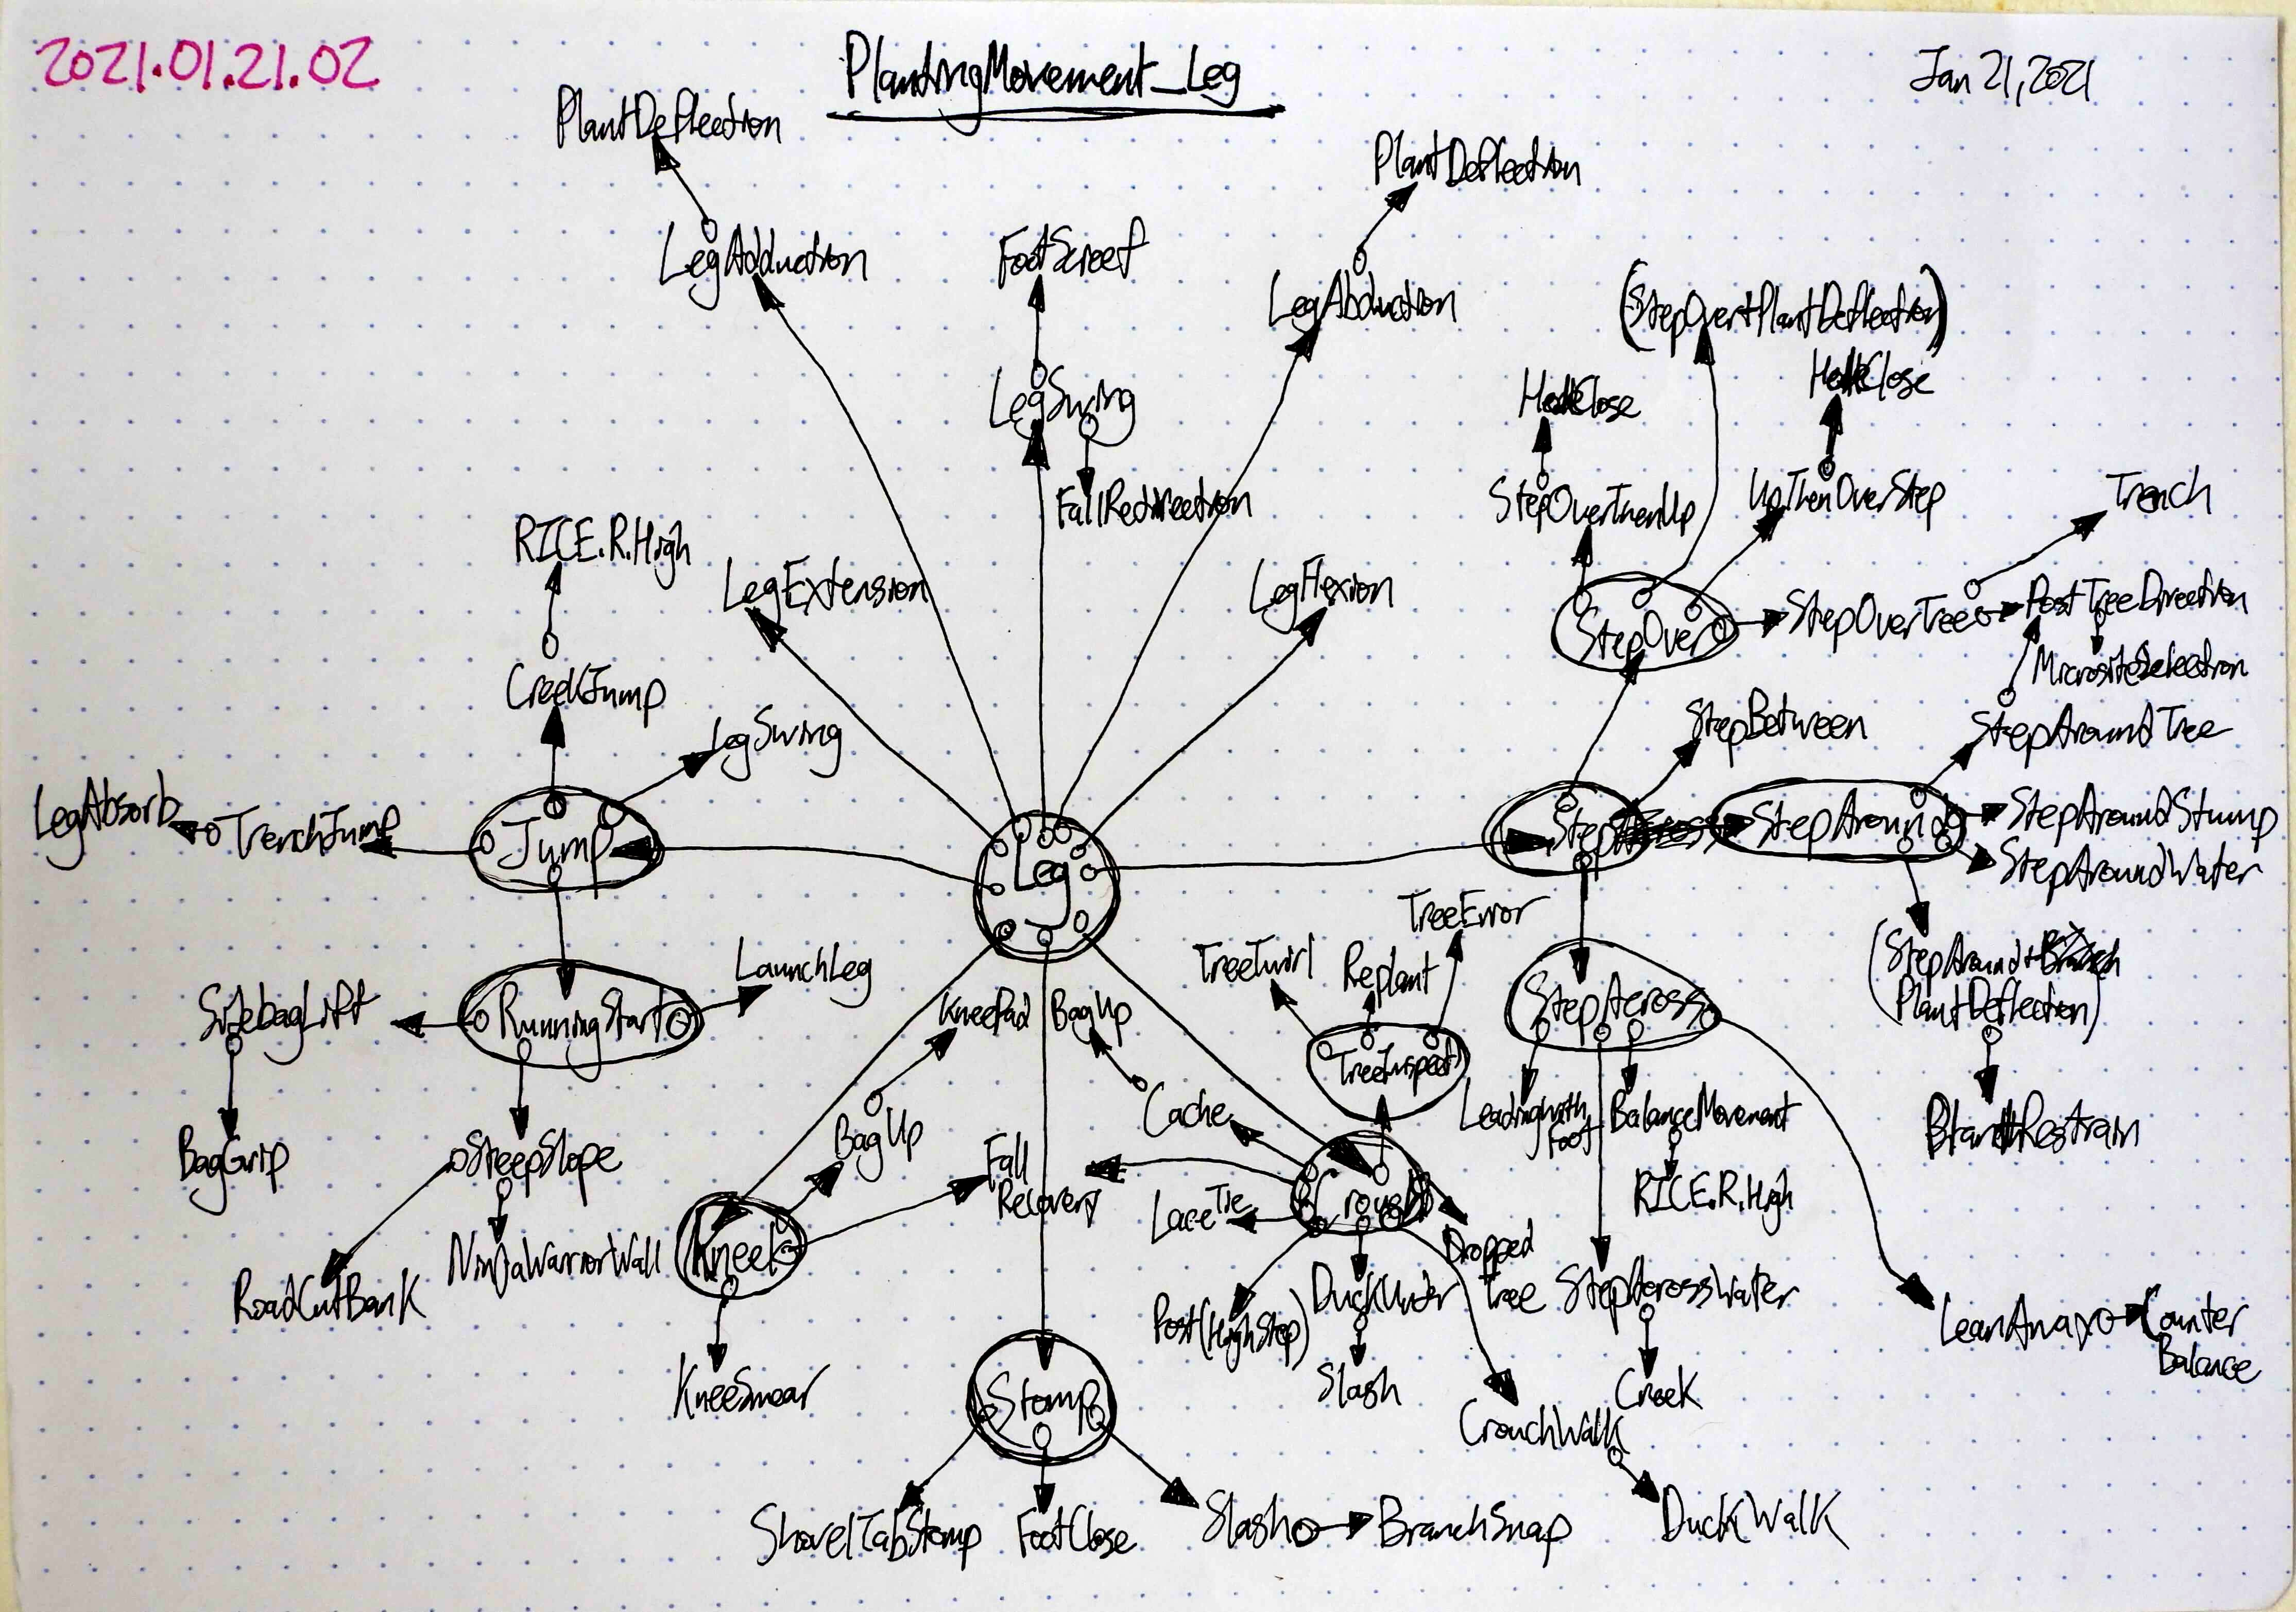 2021.01.21.02
PlantingMovement_Leg
Jan 21, 2021
PlantDeflection
PlantDeflection
LegAdduction
FootScreef
LegAbduction
(StepOver+PlantDeflection)
LegSwing
FallRedirection
StepOverThenUp
UpThenOverStep
Trench
RICE.R.High
LegExtension
LegFlexion
StepOver
StepOverTree
PostTreeDirection
MicrositeSelection
CreekJump
LegSwing
StepBetween
StepAroundTree
LegAbsorb
TrenchJump
Jump
Leg
Step
StepAround
StepAroundStump
StepAroundWater
TreeError
TreeTwirl
Replant
LaunchLeg
SidebagLift
RunningStart
KneePad
BagUp
TreeInspect
StepAcross
(StepAround+
PlantDeflection)
BagGrip
SteepSlope
BagUp
Cache
Leadingwith
Foot
BalanceMovement
Fall
Recovery
LaceTie
Crouch
RICE.R.High
RoadCutBank
NinjaWarriorWall
Kneel
Dropped
Tree
Post(HighStep)
DuckUnder
StepAcrossWater
LeanAway
Counter
Balance
KneeSmear
Stomp
Slash
Creek
CrouchWalk
ShovelTabStomp
FootClose
Slash
BranchSnap
DuckWalk